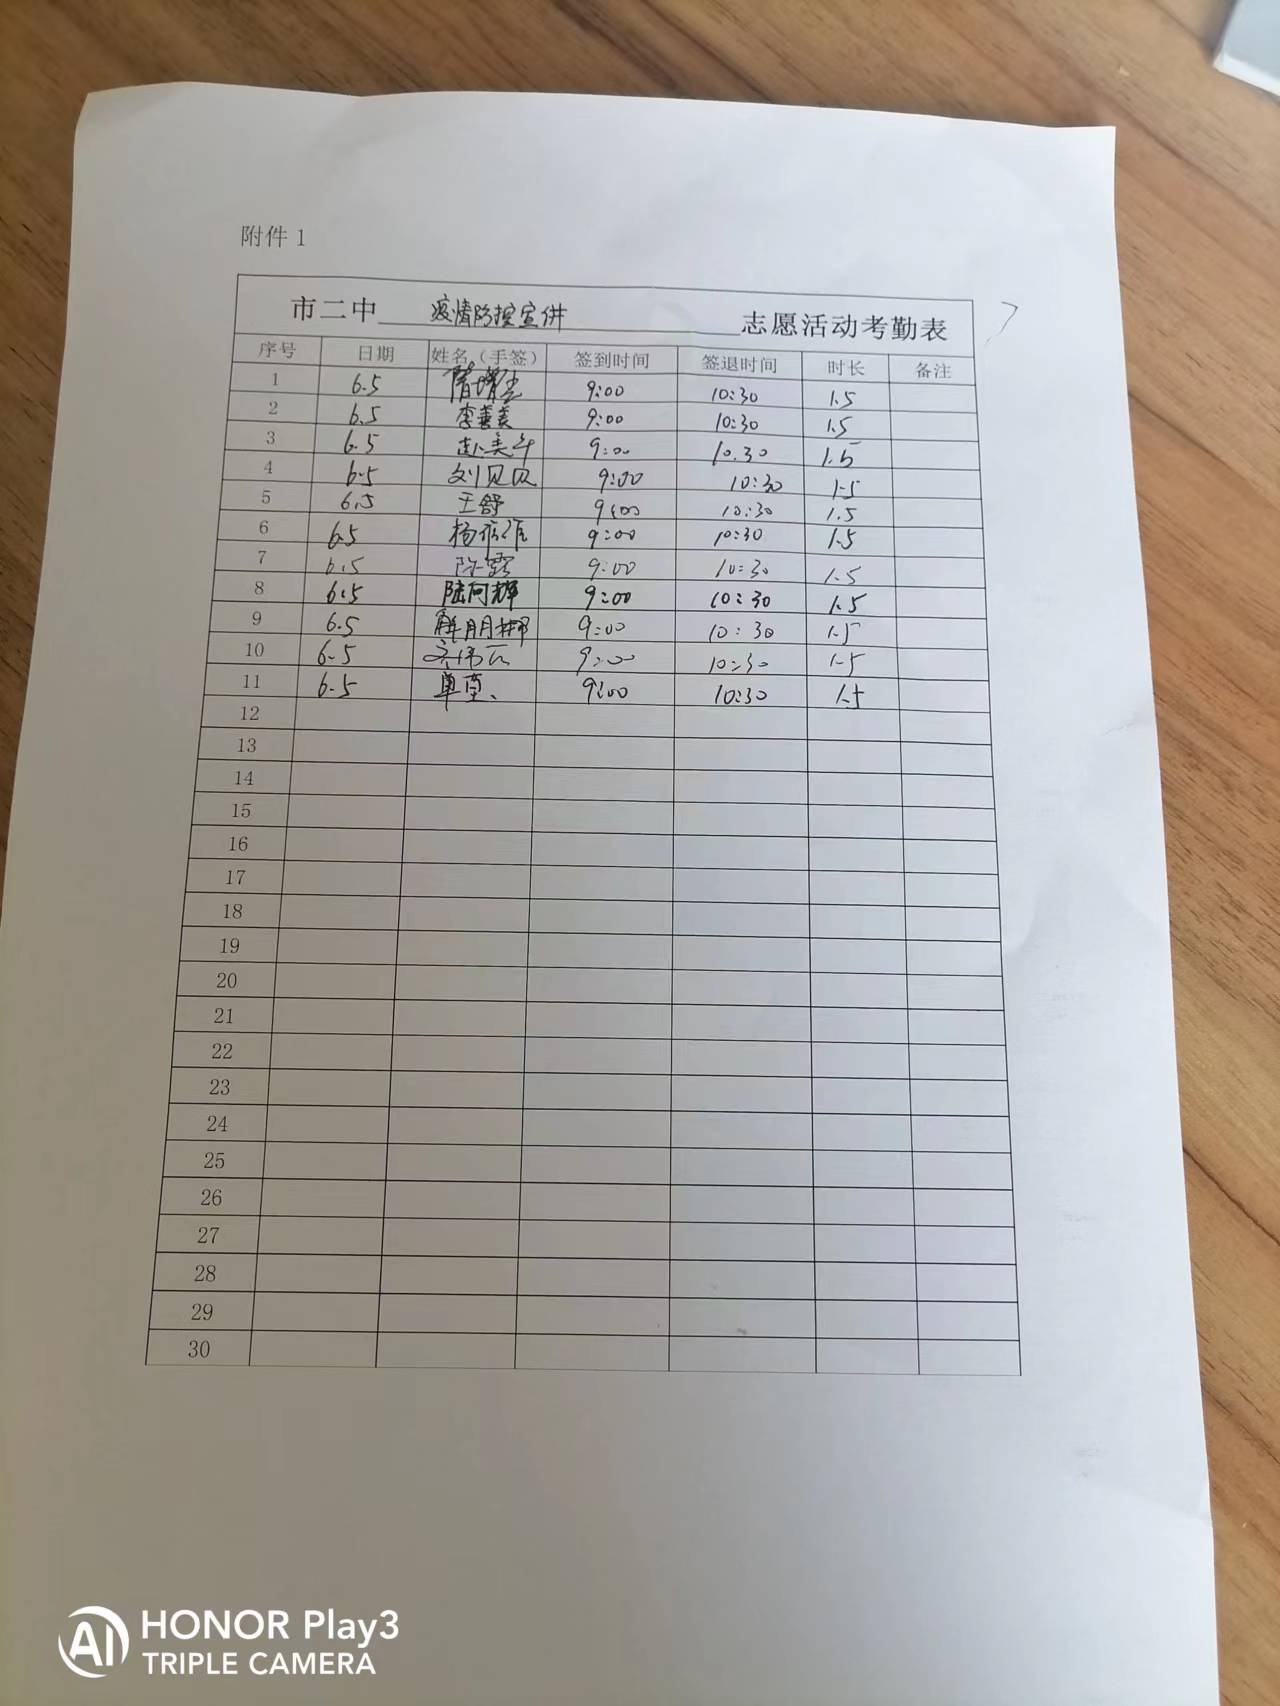 附件 1
市二中 疫情防控宣讲 志愿活动考勤表
序号 日期 姓名(手签) 签到时间 签退时间 时长 备注
1 6.5 9:00 10:30 1.5
2 6.5 李善美 9:00 10:30 1.5
3 6.5 赵美 9:00 10.30 1.5
4 6.5 刘贝贝 9:00 10:30 1.5
5 6.5 王舒 9:00 10:30 1.5
6 6.5 杨 9:00 10:30 1.5
7 6.5 陈露 9:00 10:30 1.5
8 6.5 陆向辉 9:00 10:30 1.5
9 6.5 9:00 10:30 1.5
10 6.5 9:00 10:30 1.5
11 6.5 单 9:00 10:30 1.5
12
13
14
15
16
17
18
19
20
21
22
23
24
25
26
27
28
29
30
AI HONOR Play3
TRIPLE CAMERA